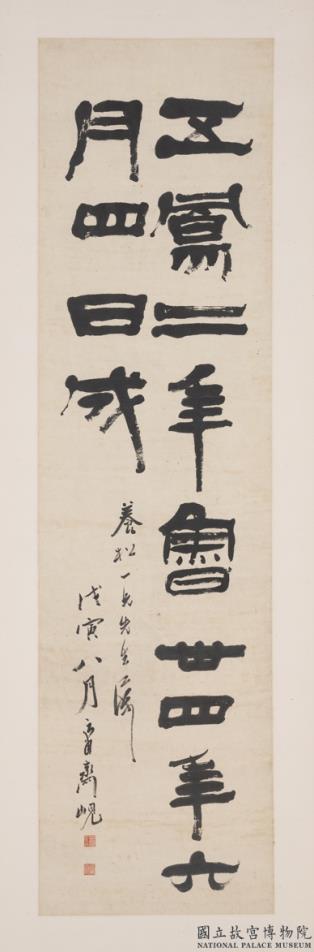 五鳳二年魯卅四年六
月四日成
養松一兄先生屬
戊寅八月
國立故宮博物院
NATIONAL PALACE MUSEUM